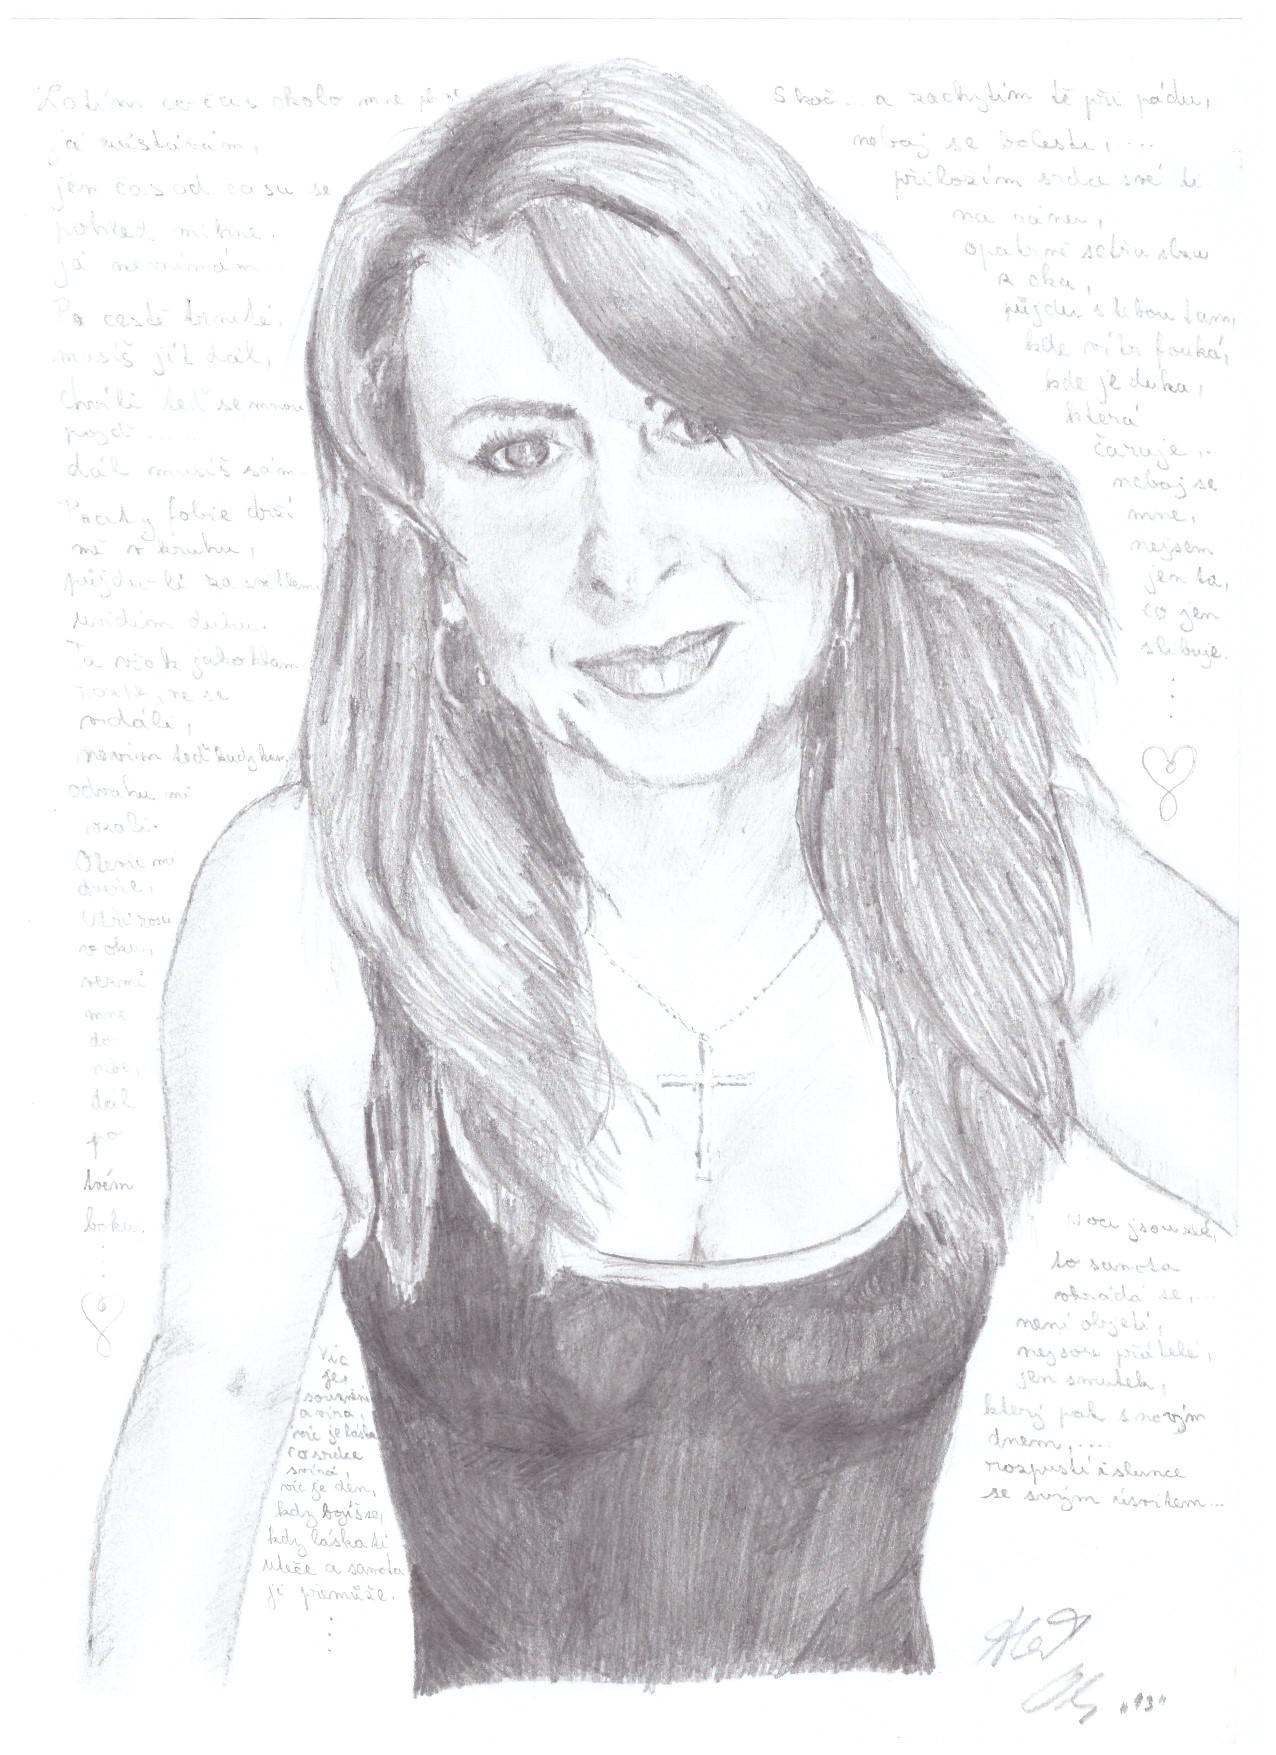 co čas okolo mne
já zůstávám,
jen čas od času se
pohled mihne.
já nevnímám
Po cestě trnité,
musíš jít dál,
chvíli teď se mnou
pojď.....
dál musíš sám.
fobie drží
mě v kruhu,
půjdu-li za světlem,
uvidím duhu.
Ta však jako klam
se
vzdálí,
nevím teď kudy kam,
odvahu mi
vzali.
Otevři mi
dveře,
utři rosu
v oku,
vezmi
mne
do
dál
po
tvém
boku.
Skoč... a zachytím tě při pádu,
neboj se bolesti,...
přiložím srdce své ti
na ránu,
opatrně setřu slzu
z oka,
půjdu s tebou tam,
kde vítr fouká,
kde je duha,
která
čaruje,..
neboj se
mne,
nejsem
jen ta,
co jen
slibuje.
Víc
je,
souznění
a víra,
víc je láska
co srdce
svírá,
víc je den,
kdy bojíš se,
kdy láska ti
uteče a samota
ji přemůže.
Noci jsou zlé,
to samota
vkrádá se,...
není objetí,
nejsou přátelé,
jen smutek,
který pak s novým
dnem,....
rozpustí i slunce
se svým úsvitem...
"13"